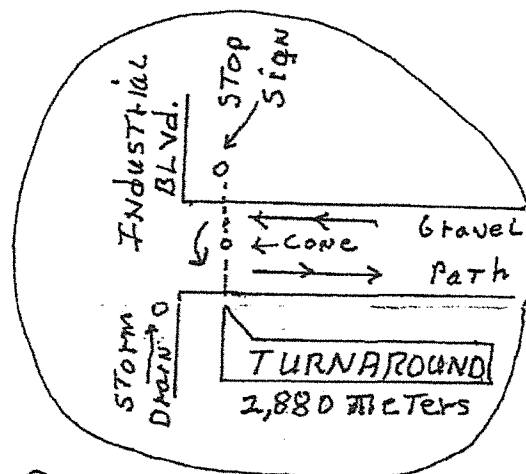 INdustrial
BLVd.
STOP
SigN
Gravel
← CONE
Path
STorm
DraiN
TURNAROUND
2,880 meTers